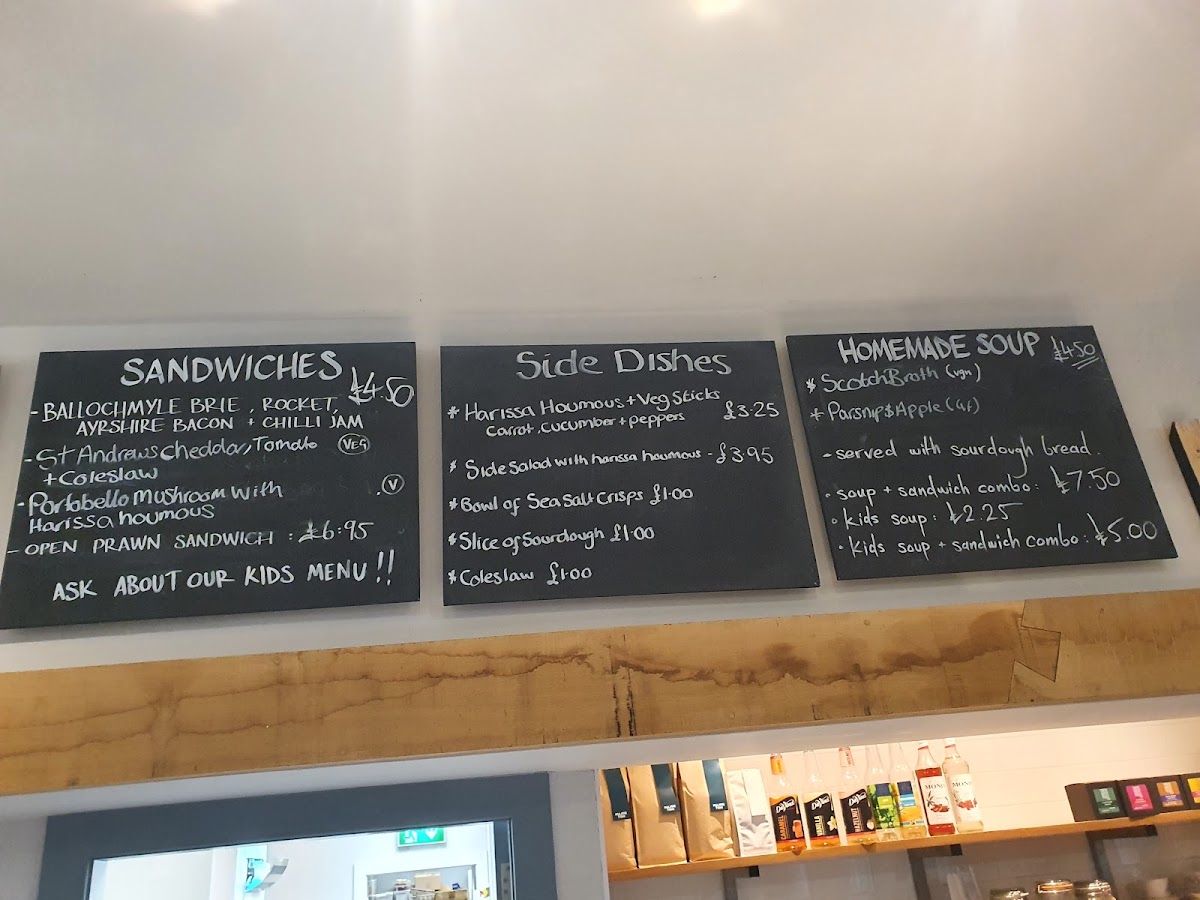 SANDWICHES
£4.50
- BALLOCHMYLE BRIE, ROCKET,
AYRSHIRE BACON + CHILLI JAM
- St Andrews Cheddar, Tomato VEG
+ Coleslaw
- Portabello Mushroom with V
Harissa houmous
- OPEN PRAWN SANDWICH : £6.95
ASK ABOUT OUR KIDS MENU!!
Side Dishes
* Harissa Houmous + Veg Sticks
Carrot, Cucumber + peppers £3.25
* Side Salad with harissa houmous - £3.95
* Bowl of Sea Salt Crisps £1.00
* Slice of Sourdough £1.00
* Coleslaw £1.00
HOMEMADE SOUP £4.50
* Scotch Broth (vgn)
* Parsnip & Apple (Gf)
- served with sourdough bread.
• soup + sandwich combo: £7.50
• kids soup: £2.25
• kids soup + sandwich combo: £5.00
DaVinci
CARAMEL
DaVinci
VANILLA
DaVinci
HAZELNUT
MONIN
MONIN